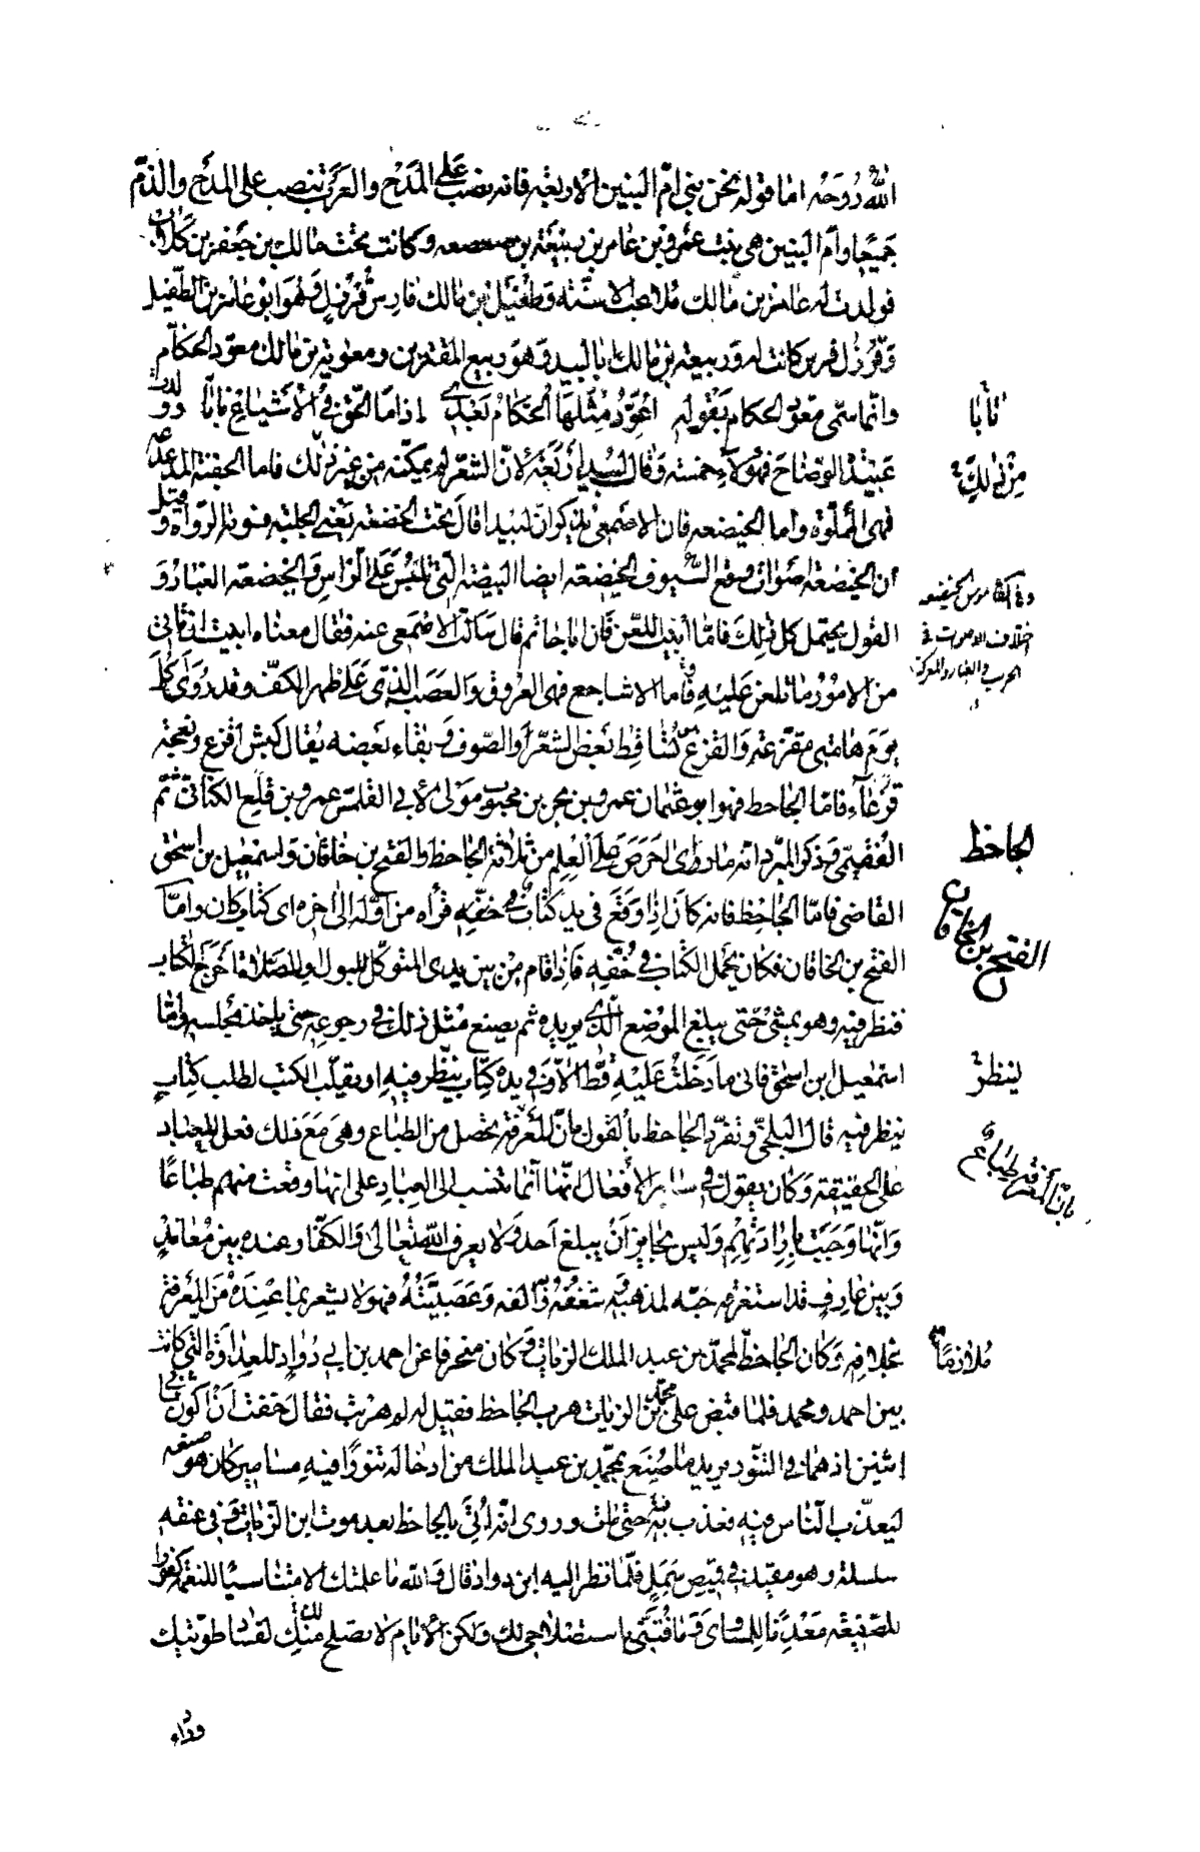 الله رُوحَه اما قوله نحن بني امّ البنين الأربعة فانه نصب على المدح والعرب تنصب على المدح والذمّ
جميعًا وامّ البنين هي بنت عمرو بن عامر بن ربيعة بن صعصعه وكانت تحت مالك بن جعفر بن كلاب
فولدت له عامر بن مالك ملاعب الاسنّة وطفيل بن مالك فارس قرزل وهو ابو عامر بن الطفيل
وقرزل فرس كانت له وربيعة بن مالك ابا لبيد وهو ربيع المقترين ومعوية بن مالك معوّد الحكام
وانّما سمّى معوّد الحكام بقوله اعوّد مثلها الحكام بعدي اذا ما الحق في الأشياع نابا ولدت
عبيدة الوضاح فهولاء خمسة وقال لبيد أربعة لانّ الشعر لم يمكنه من غير ذلك فاما الجفنة المدعدعه
فهى المملوّة واما الخيضعه فان الاصمعي يذكر انّ لبيدا قال تحت الخضعة يعني الجلبة فسوته الرّواة وقيل
ان الخيضعة اصوات وقع السّيوف والخيضعة ايضا البيضة التي تلبس على الراس والخيضعة الغبار و
القول يحتمل كل ذلك فامّا أبيت اللعن فان ابا حاتم قال سالت الاصمعي عنه فقال معناه ابيت ان تأتى
من الامور ما تلعن عليه وأما الاشاجع فهى العروق والعصب الذي على ظهر الكفّ وقد روى أكلّ
يوم هامتى مقزعة والقزع تساقط بعض الشعر او الصّوف وبقاء بعضه يقال كبش اقزع ونعجة
قزعاء فامّا الجاحظ فهو ابو عثمان عمرو بن بحر بن محبوب مولى لابي القلمس عمرو بن قلع الكناني ثم
الفقيمّى وذكر المبرّد انّه ما راى احرص على العلم من ثلاثة الجاحظ والفتح بن خاقان واسمعيل بن اسحق
القاضي فامّا الجاحظ فانه كان إذا وقع في يده كتاب قرأه من اوّله الى اخره اى كتاب كان وامّا
الفتح بن الخاقان فكان يحمل الكتاب في خفّه فاذا قام من بين يدى المتوكّل للبول او للصلاة أخرج الكتاب
فنظر فيه وهو يمشي حتى يبلغ الموضع الذي يريده ثم يصنع مثل ذلك في رجوعه حتى ياخذ مجلسه وامّا
اسمعيل ابن اسحق فانى ما دخلت عليه قطّ الّا وفي يده كتاب ينظر فيه او يقلّب الكتب لطلب كتاب
ينظر فيه قال البلخي وتفرّد الجاحظ بالقول بانّ المعرفة تحصل من الطباع وهى مع ذلك فعل للعباد
على الحقيقة وكان يقول في سائر الأفعال انّها انّما تنسب الى العباد على انها وقعت منهم طباعًا
وانّها وجبت بإرادتهم وليس بجايز أن يبلغ احد ولا يعرف الله تعالى والكفّار عنده بين معاند
وبين عارف قد استغرقه حبّه لمذهبه وشغفه والفه وعصبيّته فهو لا يشعر بما عنده من المعرفة
بخلافه وكان الجاحظ لمحمّد بن عبد الملك الزيات وكان منحرفا عن احمد بن ابي دُواد للعداوة التي كانت
بين احمد ومحمد فلما قبض على محمّد بن الزيات هرب الجاحظ فقيل له لم هربت فقال خفت أن أكون ثاني
اثنين اذ هما في التنّور يريد ما صُنع بمحمّد بن عبد الملك من ادخاله تنورًا فيه مسامير كان هو صنعه
ليعذّب الناس فيه فعذب به حتى مات وروى انه أتي بالجاحظ بعد موت ابن الزيات وفي عنقه
سلسلة وهو مقيد في قميص سمل فلمّا نظر اليه ابن دواد قال والله ما علمتك الا متناسيًا للنعمة كفورا
للصنيعة معدّدًا للمساوى وما فتنى باستصلاحى لك ولكن الأيام لا تصلح منك لفساد طويتك
نابا
من ذلك
وفي القاموس الخيضعه
اختلاف الاصوات في
الحرب والغبار والمعركة
الجاحظ
الفتح بن الخاقان
لينظر
بانّ المعرفة طباع
ملازمًا
ورداء